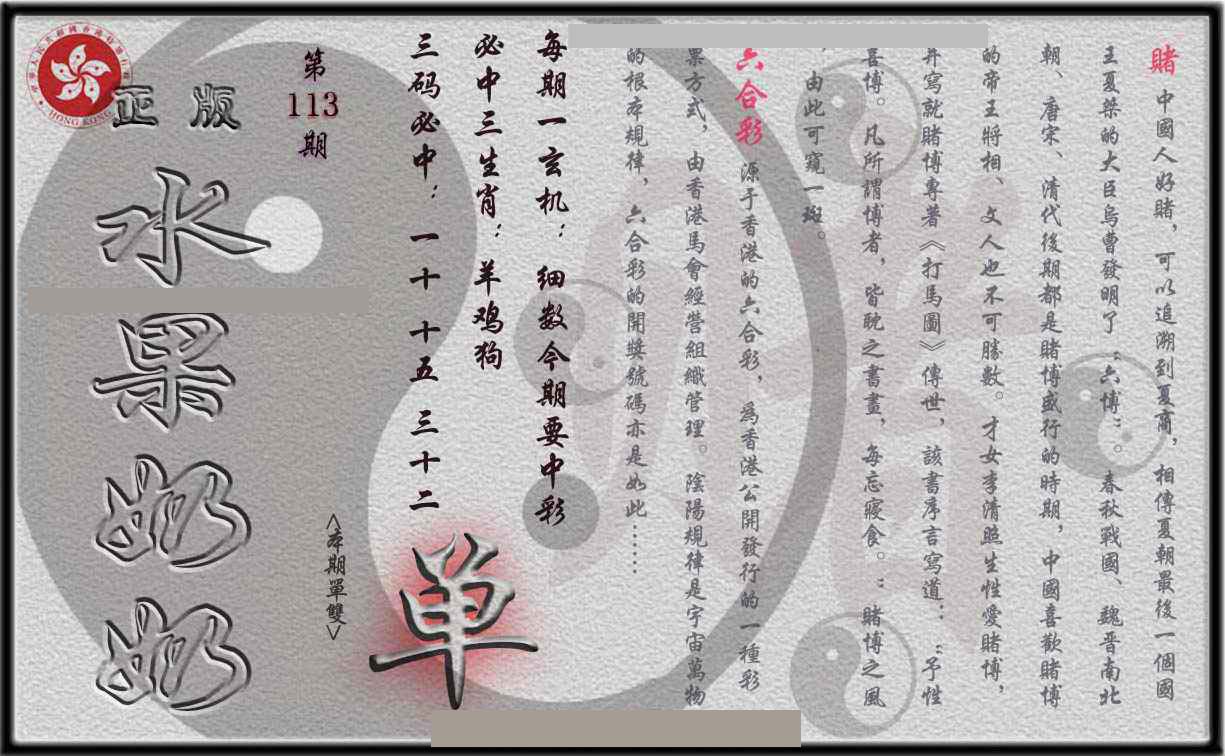 賭 中國人好賭，可以追溯到夏商，相傳夏朝最後一個國
王夏桀的大臣烏曹發明了“六博”。春秋戰國、魏晋南北
朝、唐宋、清代後期都是賭博盛行的時期，中國喜歡賭博
的帝王將相、文人也不可勝數。才女李清照生性愛賭博，
并寫就賭博專著《打馬圖》傳世，該書序言寫道：“予性
喜博。凡所謂博者，皆耽之書畫，每忘寢食。”賭博之風
，由此可窺一斑。
六合彩 源于香港的六合彩，爲香港公開發行的一種彩
票方式，由香港馬會經營組織管理。陰陽規律是宇宙萬物
的根本規律，六合彩的開獎號碼亦是如此……
每期一玄机：细数今期要中彩
必中三生肖：羊鸡狗
三码必中：一十 十五 三十二
单
<本期單雙>
第
113
期
正版
水果奶奶
HONG KONG